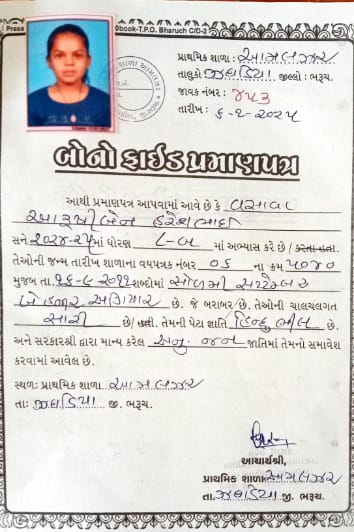 Press
book-T.P.O. Bharuch C/D-2
પ્રાથમિક શાળા : આમલઝર
તાલુકો ઝઘડિયા જીલ્લો : ભરૂચ.
જાવક નંબર : ૪૫૩
તારીખ : ૬-૨-૨૦૨૫
બોનો ફાઈડ પ્રમાણપત્ર
આથી પ્રમાણપત્ર આપવામાં આવે છે કે વસાવા
આરૂષીબેન હરેશભાઈ
સને ૨૦૨૪-૨૫માં ધોરણ ૮-બ માં અભ્યાસ કરે છે / કરતા હતા.
તેઓની જન્મ તારીખ શાળાના વયપત્રક નંબર ૦૬ ના ક્રમ ૫૦૪૦
મુજબ તા. ૧૬-૯-૨૦૧૧ શબ્દોમાં સોળમી સપ્ટેમ્બર
બે હજાર અગિયાર છે. જે બરાબર છે. તેઓની ચાલચલગત
સારી છે/ હતી. તેમની પેટા જ્ઞાતિ હિન્દુ ભીલ છે.
અને સરકારશ્રી દ્વારા માન્ય કરેલ અનુ. જન જાતિમાં તેમનો સમાવેશ
કરવામાં આવેલ છે.
સ્થળ: પ્રાથમિક શાળા આમલઝર
તા: ઝઘડિયા જી. ભરૂચ.
આચાર્યશ્રી,
પ્રાથમિક શાળા આમલઝર
તા. ઝઘડિયા જી. ભરૂચ.